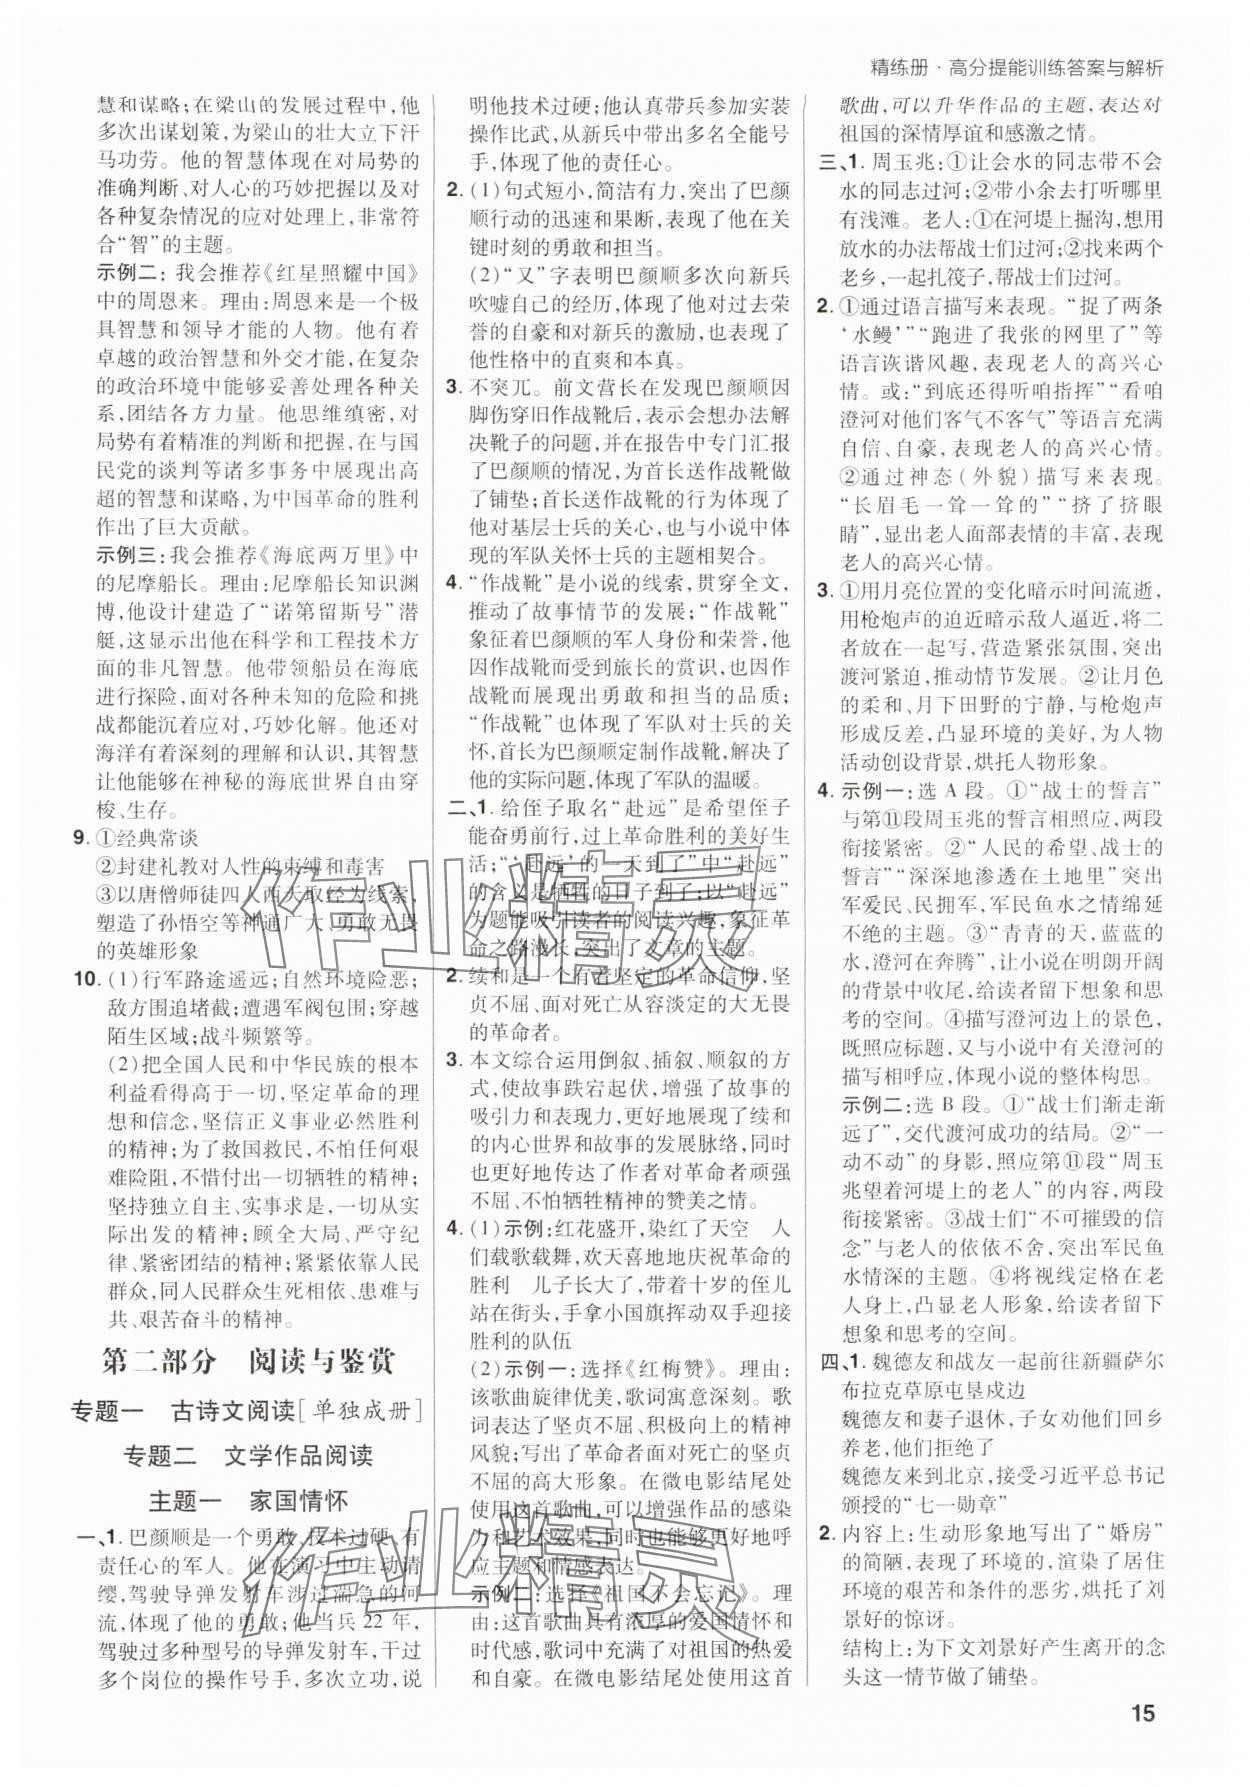 精练册·高分提能训练答案与解析
慧和谋略;在梁山的发展过程中,他
多次出谋划策,为梁山的壮大立下汗
马功劳。他的智慧体现在对局势的
准确判断、对人心的巧妙把握以及对
各种复杂情况的应对处理上,非常符
合“智”的主题。
示例二:我会推荐《红星照耀中国》
中的周恩来。理由:周恩来是一个极
具智慧和领导才能的人物。他有着
卓越的政治智慧和外交才能,在复杂
的政治环境中能够妥善处理各种关
系,团结各方力量。他思维缜密,对
局势有着精准的判断和把握,在与国
民党的谈判等诸多事务中展现出高
超的智慧和谋略,为中国革命的胜利
作出了巨大贡献。
示例三:我会推荐《海底两万里》中
的尼摩船长。理由:尼摩船长知识渊
博,他设计建造了“诺第留斯号”潜
艇,这显示出他在科学和工程技术方
面的非凡智慧。他带领船员在海底
进行探险,面对各种未知的危险和挑
战都能沉着应对,巧妙化解。他还对
海洋有着深刻的理解和认识,其智慧
让他能够在神秘的海底世界自由穿
梭、生存。
9. ①经典常谈
②封建礼教对人性的束缚和毒害
③以唐僧师徒四人西天取经为线索,
塑造了孙悟空等神通广大、勇敢无畏
的英雄形象
10. (1)行军路途遥远;自然环境险恶;
敌方围追堵截;遭遇军阀包围;穿越
陌生区域;战斗频繁等。
(2)把全国人民和中华民族的根本
利益看得高于一切,坚定革命的理
想和信念,坚信正义事业必然胜利
的精神;为了救国救民,不怕任何艰
难险阻,不惜付出一切牺牲的精神;
坚持独立自主、实事求是,一切从实
际出发的精神;顾全大局、严守纪
律、紧密团结的精神;紧紧依靠人民
群众,同人民群众生死相依、患难与
共、艰苦奋斗的精神。
第二部分 阅读与鉴赏
专题一 古诗文阅读[单独成册]
专题二 文学作品阅读
主题一 家国情怀
一、1. 巴颜顺是一个勇敢、技术过硬、有
责任心的军人。他在演习中主动请
缨,驾驶导弹发射车涉过湍急的河
流,体现了他的勇敢;他当兵 22 年,
驾驶过多种型号的导弹发射车,干过
多个岗位的操作号手,多次立功,说
明他技术过硬;他认真带兵参加实装
操作比武,从新兵中带出多名全能号
手,体现了他的责任心。
2. (1)句式短小,简洁有力,突出了巴颜
顺行动的迅速和果断,表现了他在关
键时刻的勇敢和担当。
(2)“又”字表明巴颜顺多次向新兵
吹嘘自己的经历,体现了他对过去荣
誉的自豪和对新兵的激励,也表现了
他性格中的直爽和本真。
3. 不突兀。前文营长在发现巴颜顺因
脚伤穿旧作战靴后,表示会想办法解
决靴子的问题,并在报告中专门汇报
了巴颜顺的情况,为首长送作战靴做
了铺垫;首长送作战靴的行为体现了
他对基层士兵的关心,也与小说中体
现的军队关怀士兵的主题相契合。
4. “作战靴”是小说的线索,贯穿全文,
推动了故事情节的发展;“作战靴”
象征着巴颜顺的军人身份和荣誉,他
因作战靴而受到旅长的赏识,也因作
战靴而展现出勇敢和担当的品质;
“作战靴”也体现了军队对士兵的关
怀,首长为巴颜顺定制作战靴,解决了
他的实际问题,体现了军队的温暖。
二、1. 给侄子取名“赴远”是希望侄子
能奋勇前行,过上革命胜利的美好生
活;“‘赴远’的一天到了”中“赴远”
的含义是牺牲的日子到了;以“赴远”
为题能吸引读者的阅读兴趣,象征革
命之路漫长,突出了文章的主题。
2. 续和是一个有着坚定的革命信仰,坚
贞不屈、面对死亡从容淡定的大无畏
的革命者。
3. 本文综合运用倒叙、插叙、顺叙的方
式,使故事跌宕起伏,增强了故事的
吸引力和表现力,更好地展现了续和
的内心世界和故事的发展脉络,同时
也更好地传达了作者对革命者顽强
不屈、不怕牺牲精神的赞美之情。
4. (1)示例:红花盛开,染红了天空 人
们载歌载舞,欢天喜地地庆祝革命的
胜利 儿子长大了,带着十岁的侄儿
站在街头,手拿小国旗挥动双手迎接
胜利的队伍
(2)示例一:选择《红梅赞》。理由:
该歌曲旋律优美,歌词寓意深刻。歌
词表达了坚贞不屈、积极向上的精神
风貌;写出了革命者面对死亡的坚贞
不屈的高大形象。在微电影结尾处
使用这首歌曲,可以增强作品的感染
力和艺术效果,同时也能够更好地呼
应主题和情感表达。
示例二:选择《祖国不会忘记》。理
由:这首歌曲具有浓厚的爱国情怀和
时代感,歌词中充满了对祖国的热爱
和自豪。在微电影结尾处使用这首
歌曲,可以升华作品的主题,表达对
祖国的深情厚谊和感激之情。
三、1. 周玉兆:①让会水的同志带不会
水的同志过河;②带小余去打听哪里
有浅滩。老人:①在河堤上掘沟,想用
放水的办法帮战士们过河;②找来两个
老乡,一起扎筏子,帮战士们过河。
2. ①通过语言描写来表现。“捉了两条
‘水鳗’”“跑进了我张的网里了”等
语言诙谐风趣,表现老人的高兴心
情。或:“到底还得听咱指挥”“看咱
澄河对他们客气不客气”等语言充满
自信、自豪,表现老人的高兴心情。
②通过神态(外貌)描写来表现。
“长眉毛一耸一耸的”“挤了挤眼
睛”,显出老人面部表情的丰富,表现
老人的高兴心情。
3. ①用月亮位置的变化暗示时间流逝,
用枪炮声的迫近暗示敌人逼近,将二
者放在一起写,营造紧张氛围,突出
渡河紧迫,推动情节发展。②让月色
的柔和、月下田野的宁静,与枪炮声
形成反差,凸显环境的美好,为人物
活动创设背景,烘托人物形象。
4. 示例一:选 A 段。①“战士的誓言”
与第⑪段周玉兆的誓言相照应,两段
衔接紧密。②“人民的希望、战士的
誓言”“深深地渗透在土地里”突出
军爱民、民拥军,军民鱼水之情绵延
不绝的主题。③“青青的天,蓝蓝的
水,澄河在奔腾”,让小说在明朗开阔
的背景中收尾,给读者留下想象和思
考的空间。④描写澄河边上的景色,
既照应标题,又与小说中有关澄河的
描写相呼应,体现小说的整体构思。
示例二:选 B 段。①“战士们渐走渐
远了”,交代渡河成功的结局。②“一
动不动”的身影,照应第⑪段“周玉
兆望着河堤上的老人”的内容,两段
衔接紧密。③战士们“不可摧毁的信
念”与老人的依依不舍,突出军民鱼
水情深的主题。④将视线定格在老
人身上,凸显老人形象,给读者留下
想象和思考的空间。
四、1. 魏德友和战友一起前往新疆萨尔
布拉克草原屯垦戍边
魏德友和妻子退休,子女劝他们回乡
养老,他们拒绝了
魏德友来到北京,接受习近平总书记
颁授的“七一勋章”
2. 内容上:生动形象地写出了“婚房”
的简陋,表现了环境的,渲染了居住
环境的艰苦和条件的恶劣,烘托了刘
景好的惊讶。
结构上:为下文刘景好产生离开的念
头这一情节做了铺垫。
作业精灵
作业精灵
15